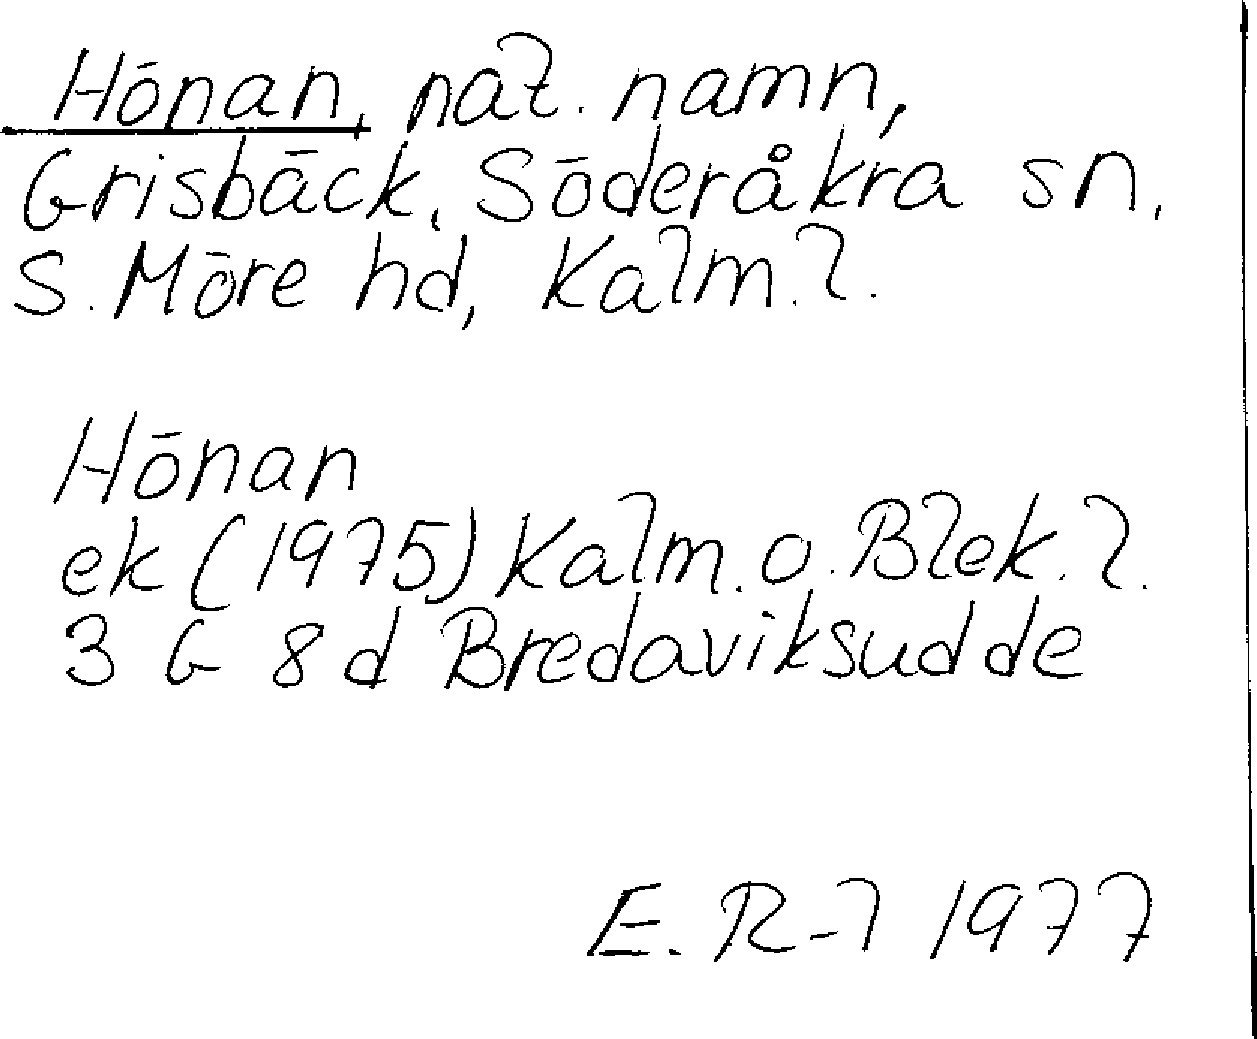 Hönan, nat. namn,
Grisbäck, Söderåkra sn,
S. Möre hd, Kalm. l.
Hönan
ek (1975) Kalm. o. Blek. l.
3 G 8 d Bredaviksudde
E. R-l 1977